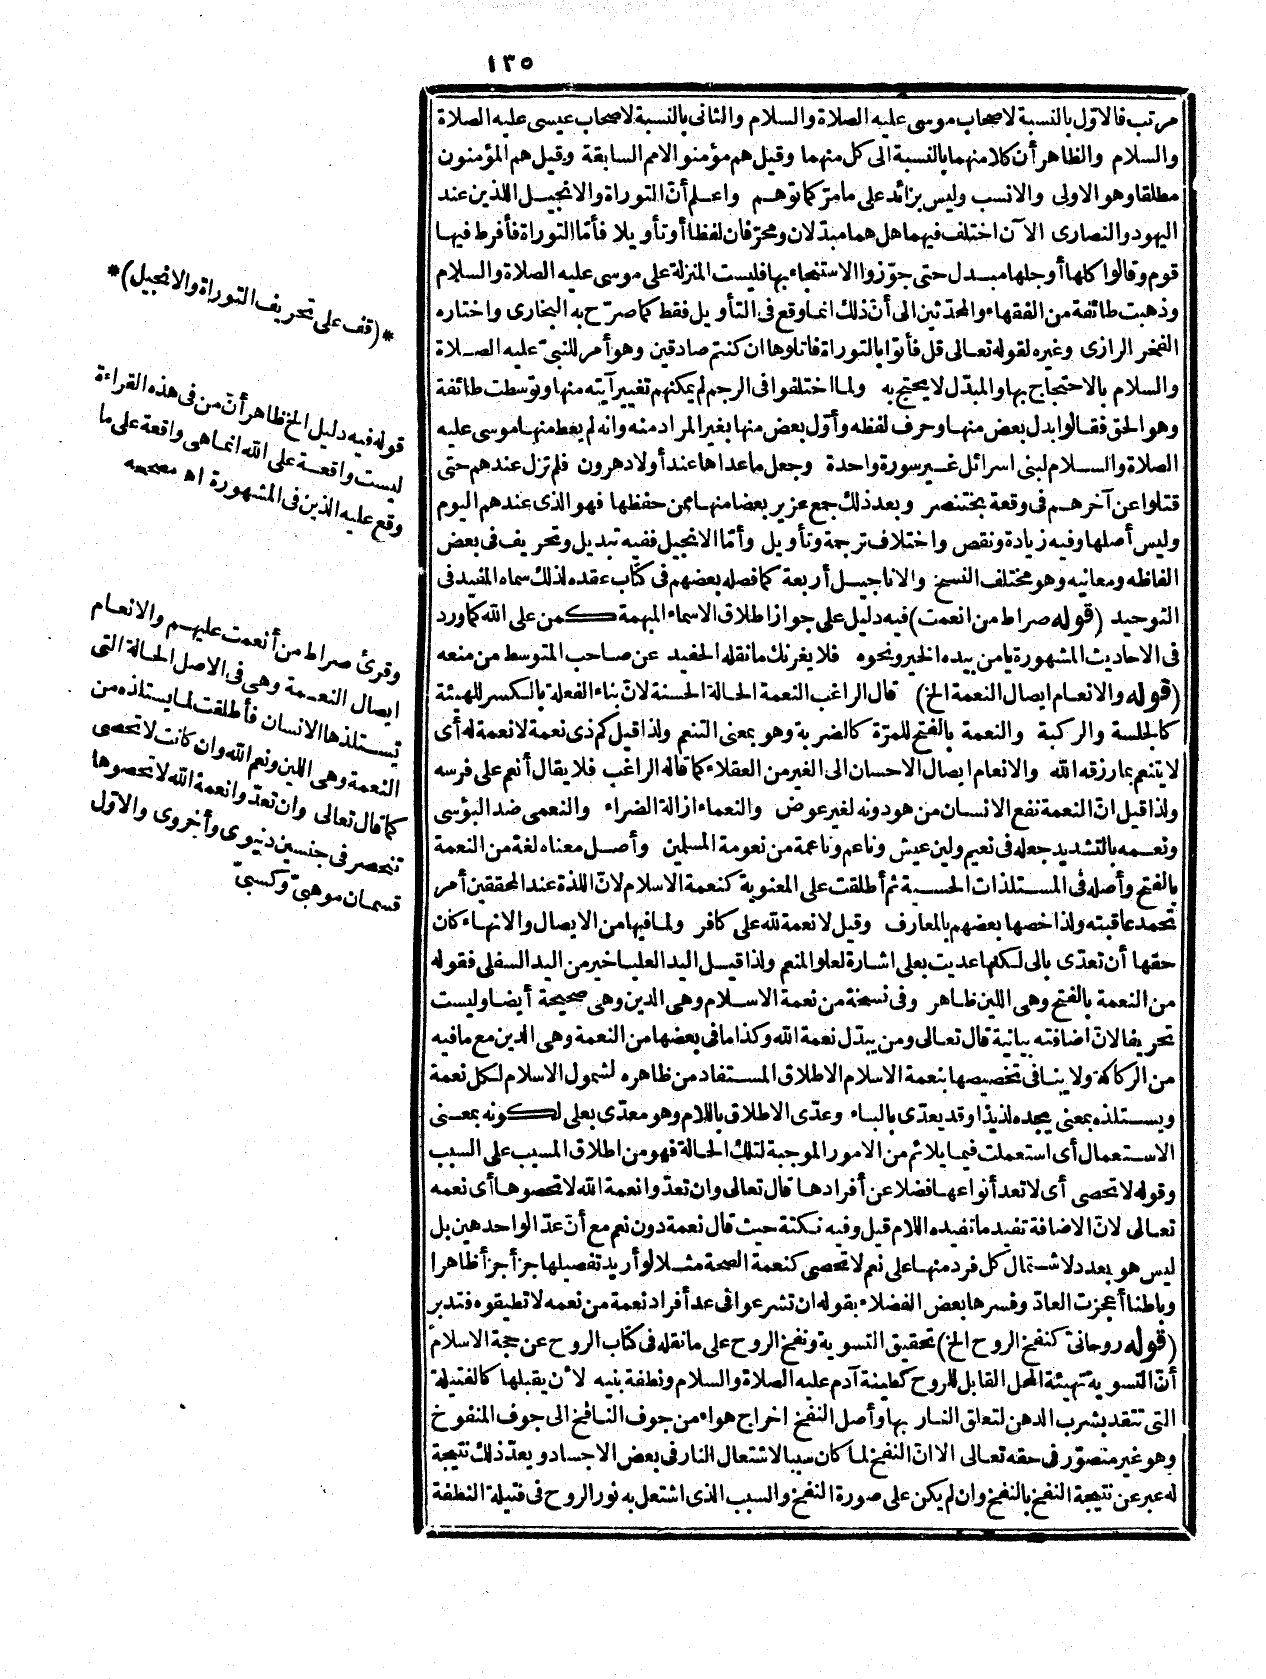 ١٣٥
مرتب فالاوّل بالنسبة لاصحاب موسى عليه الصلاة والسلام والثانى بالنسبة لاصحاب عيسى عليه الصلاة
والسلام والظاهر أن كلا منهما بالنسبة الى كل منهما وقيل هم مؤمنو الامم السابقة وقيل هم المؤمنون
مطلقا وهو الاولى والانسب وليس بزائد على مامرّ كما توهم واعلم أنّ التوراة والانجيل اللذين عند
اليهود والنصارى الآن اختلف فيهما هل هما مبدّلان ومحرّفان لفظا أو تأويلا فأمّا التوراة فأفرط فيها
قوم وقالوا كلها أو جلها مبدل حتى جوّزوا الاستنجاء بها فليست المنزلة على موسى عليه الصلاة والسلام
وذهبت طائفة من الفقهاء والمحدّثين الى أنّ ذلك انما وقع فى التأويل فقط كما صرّح به البخارى واختاره
الفخر الرازى وغيره لقوله تعالى قل فأتوا بالتوراة فاتلوها ان كنتم صادقين وهو أمر للنبىّ عليه الصلاة
والسلام بالاحتجاج بها والمبدّل لا يحتج به ولما اختلفوا فى الرجم لم يمكنهم تغيير آيته منها وتوسطت طائفة
وهو الحق فقالوا بدل بعض منها وحرف لفظه وأوّل بعض منها بغير المراد منه وانه لم يعط منها موسى عليه
الصلاة والسلام لبنى اسرائل غير سورة واحدة وجعل ما عداها عند أولاد هرون فلم تزل عندهم حتى
قتلوا عن آخرهم فى وقعة بختنصر وبعد ذلك جمع عزير بعضا منها ممن حفظها فهو الذى عندهم اليوم
وليس أصلها وفيه زيادة ونقص واختلاف ترجمة وتأويل وأمّا الانجيل ففيه تبديل وتحريف فى بعض
الفاظه ومعانيه وهو مختلف النسخ والاناجيل أربعة كما فصله بعضهم فى كتاب عقده لذلك سماه المفيد فى
التوحيد (قوله صراط من انعمت) فيه دليل على جواز اطلاق الاسماء المبهمة كمن على الله كما ورد
فى الاحاديث المشهورة يا من بيده الخير ونحوه فلا يغرنك ما نقله الحفيد عن صاحب المتوسط من منعه
(قوله والانعام ايصال النعمة الخ) قال الراغب النعمة الحالة الحسنة لانّ بناء الفعلة بالكسر للهيئة
كالجلسة والركبة والنعمة بالفتح للمرّة كالضربة وهو بمعنى التنعم ولذا قيل كم ذى نعمة لا نعمة له أى
لا يتنعم بما رزقه الله والانعام ايصال الاحسان الى الغير من العقلاء كما قاله الراغب فلا يقال أنعم على فرسه
ولذا قيل انّ النعمة نفع الانسان من هو دونه لغير عوض والنعماء ازالة الضراء والنعمى ضد البؤسى
ونعمه بالتشديد جعله فى نعيم ولين عيش وناعم وناعمة من نعومة الملمس وأصل معناه لغة من النعمة
بالفتح وأصله فى المستلذات الحسية ثم أطلقت على المعنوية كنعمة الاسلام لانّ اللذة عند المحققين أمر
تحمد عاقبته ولذا خصها بعضهم بالمعارف وقيل لا نعمة لله على كافر ولما فيها من الايصال والانهاء كان
حقها أن تعدّى بالى لكنها عديت بعلى اشارة لعلو المنعم ولذا قيل اليد العليا خير من اليد السفلى فقوله
من النعمة بالفتح وهى اللين ظاهر وفى نسخة من نعمة الاسلام وهى الدين وهى صحيحة أيضا وليست
تحريفا لانّ اضافته بيانية قال تعالى ومن يبدّل نعمة الله وكذا ما فى بعضها من النعمة وهى الدين مع ما فيه
من الركاكة ولا ينافى تخصيصها بنعمة الاسلام الاطلاق المستفاد من ظاهره لشمول الاسلام لكل نعمة
ويستلذه بمعنى يجده لذيذا وقد يعدّى بالباء وعدّى الاطلاق باللام وهو معدّى بعلى لكونه بمعنى
الاستعمال أى استعملت فيما يلائم من الامور الموجبة لتلك الحالة فهو من اطلاق المسبب على السبب
وقوله لا تحصى أى لا تعد أنواعها فضلا عن أفرادها قال تعالى وان تعدّوا نعمة الله لا تحصوها أى نعمه
تعالى لانّ الاضافة تفيد ما تفيده اللام قيل وفيه نكتة حيث قال نعمة دون نعم مع أنّ عدّ الواحد هين بل
ليس هو بعدد لاشتمال كل فرد منها على نعم لا تحصى كنعمة الصحة مثلا لو أريد تفصيلها جزأ جزأ ظاهرا
وباطنا أعجزت العادّ وفسرها بعض الفضلاء بقوله ان تشرعوا فى عد أفراد نعمة من نعمه لا تطيقوه فتدبر
(قوله روحانىّ كنفخ الروح الخ) تحقيق التسوية ونفخ الروح على ما نقله فى كتاب الروح عن حجة الاسلام
أنّ التسوية تهيئة المحل القابل للروح كطينة آدم عليه الصلاة والسلام ونطفة بنيه لأن يقبلها كالفتيلة
التى تتقد بشرب الدهن لتعلق النار بها وأصل النفخ اخراج هواء من جوف النافخ الى جوف المنفوخ
وهو غير متصوّر فى حقه تعالى الا انّ النفخ لما كان سببا لاشتعال النار فى بعض الاجساد ويعدّ ذلك نتيجة
له عبر عن نتيجة النفخ بالنفخ وان لم يكن على صورة النفخ والسبب الذى اشتعل به نور الروح فى فتيلة النطفة
*(قف على تحريف التوراة والانجيل)*
قوله فيه دليل الخ ظاهر أنّ من فى هذه القراءة
ليست واقعة على الله انما هى واقعة على ما
وقع عليه الذين فى المشهورة اه مصححه
وقرئ صراط من أنعمت عليهم والانعام
ايصال النعمة وهى فى الاصل الحالة التى
يستلذها الانسان فأطلقت لما يستلذه من
النعمة وهى اللين ونعم الله وان كانت لا تحصى
كما قال تعالى وان تعدّوا نعمة الله لا تحصوها
تنحصر فى جنسين دنيوى وأخروى والاوّل
قسمان موهبىّ وكسبىّ